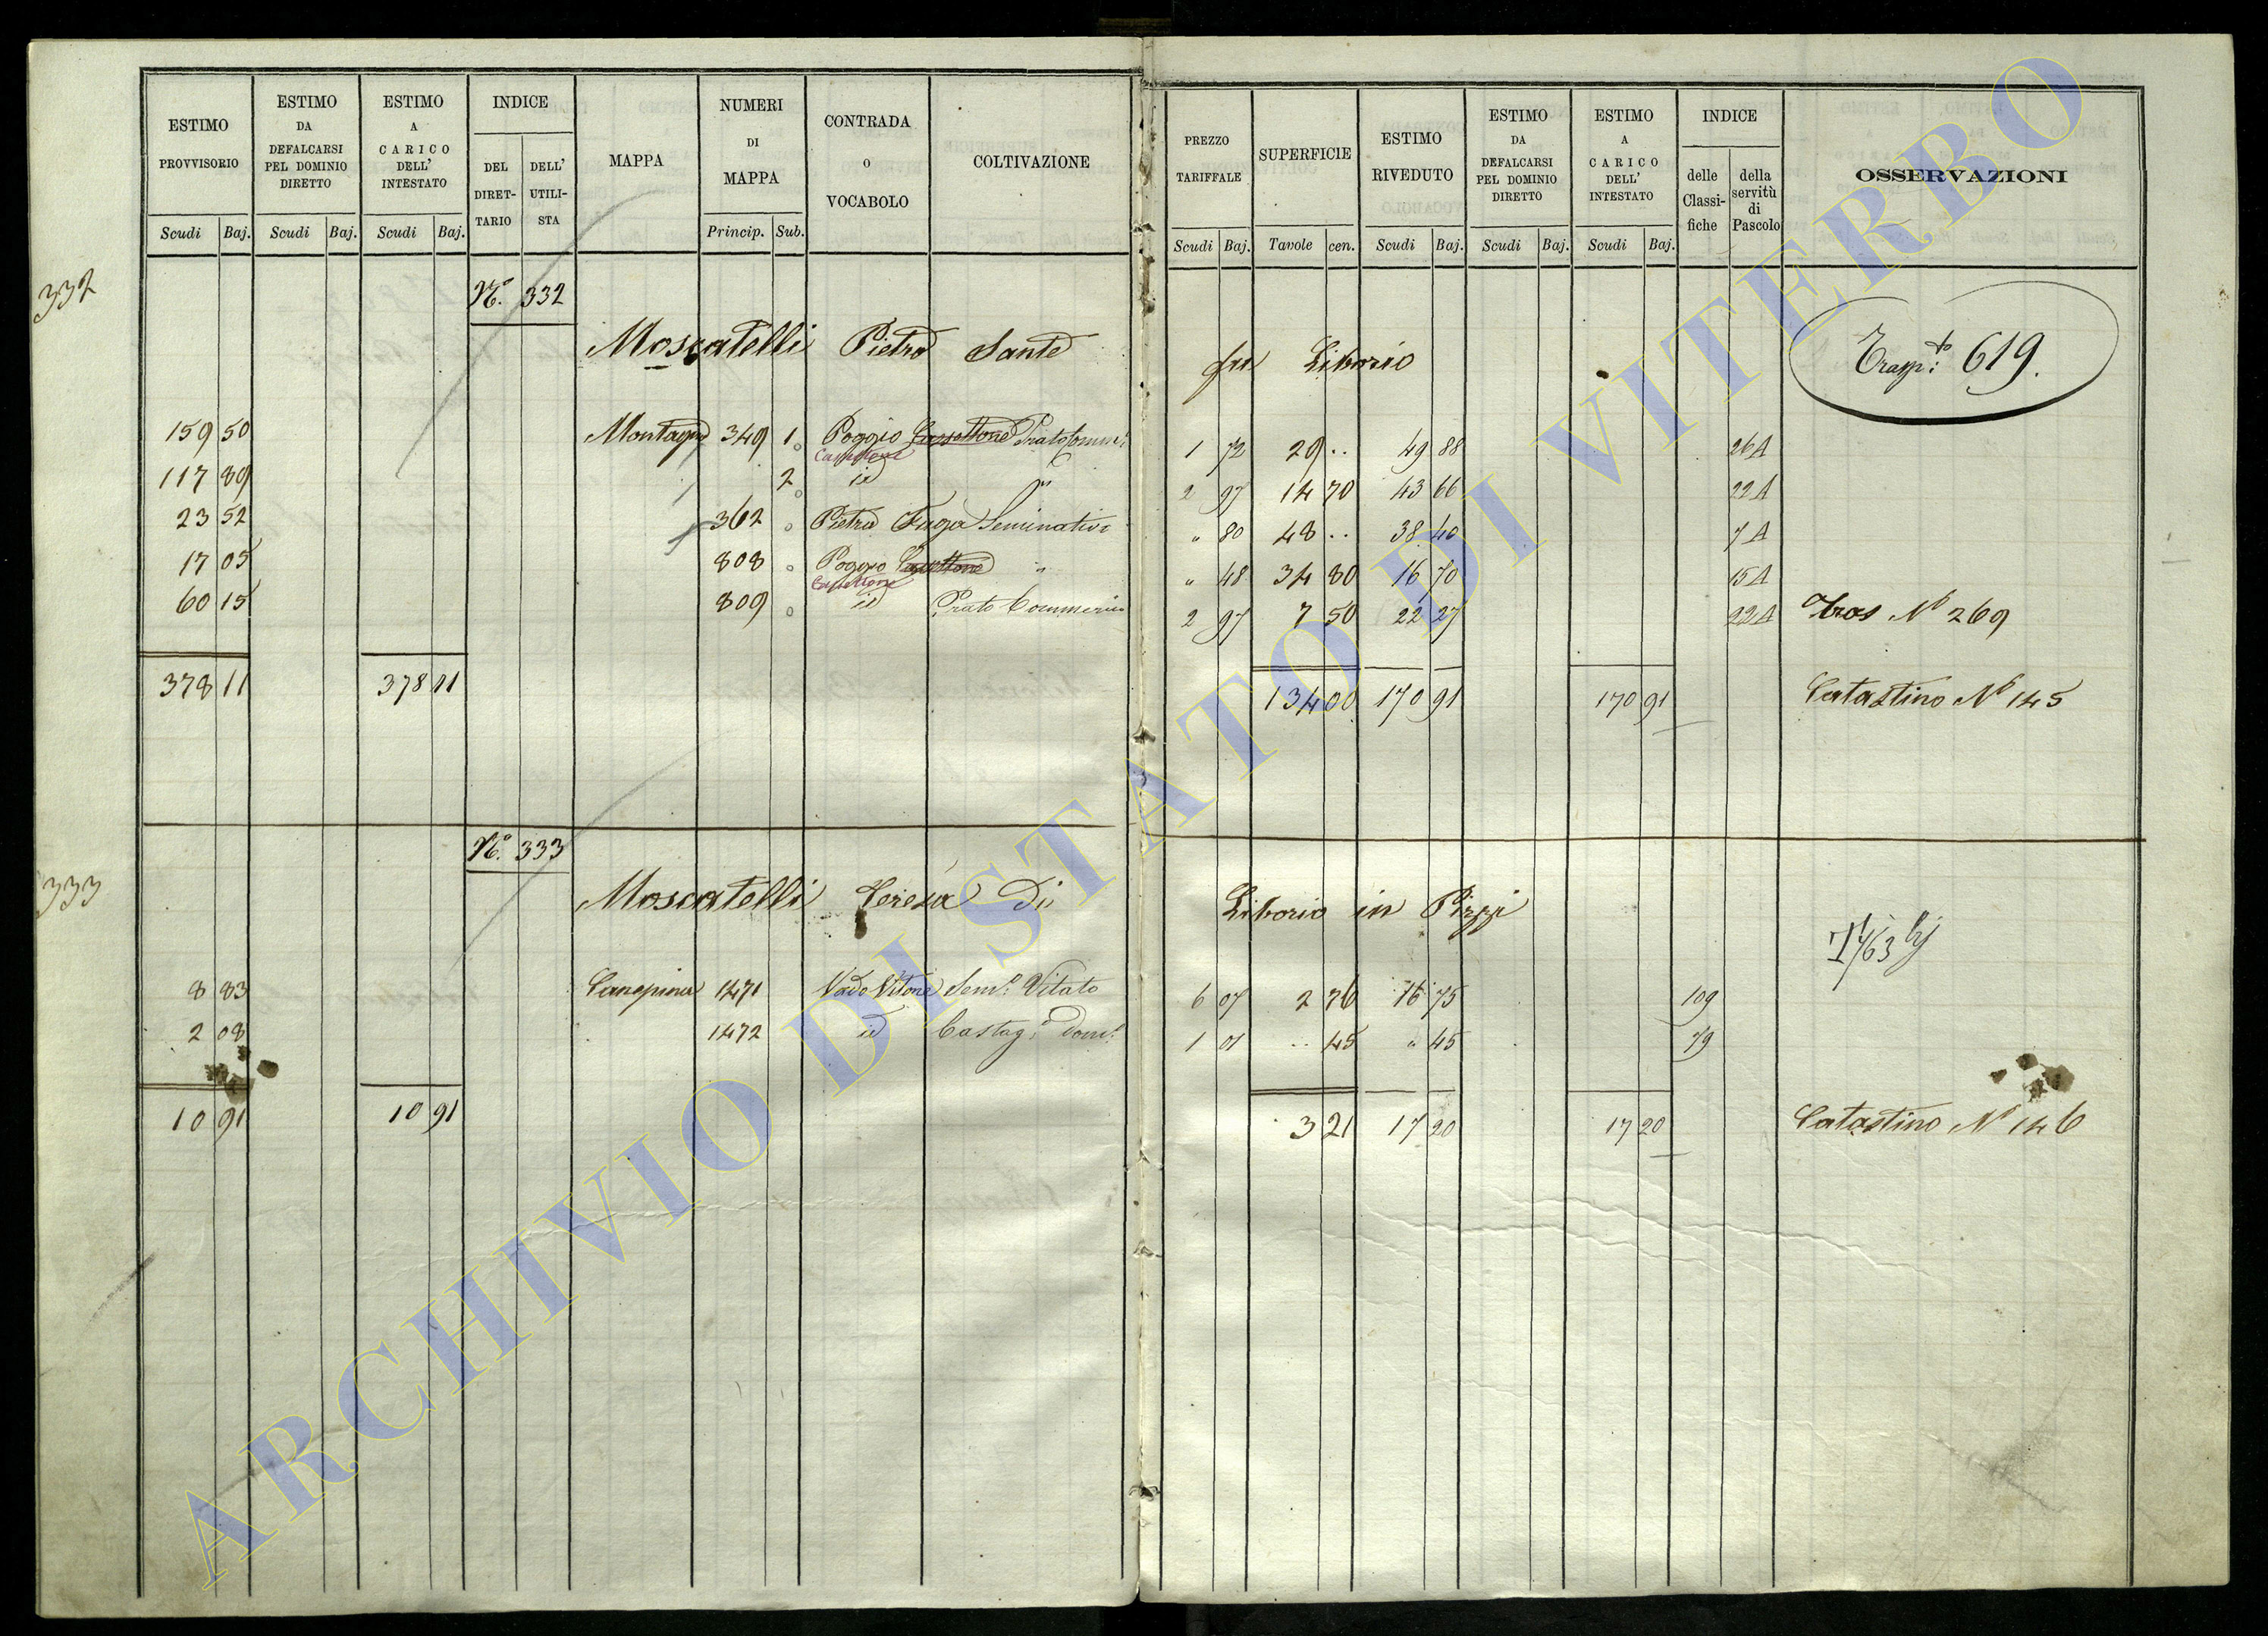 ESTIMO PROVVISORIO Scudi Baj. ESTIMO DA DEFALCARSI PEL DOMINIO DIRETTO Scudi Baj. ESTIMO A CARICO DELL' INTESTATO Scudi Baj. INDICE DEL DIRET-TARIO DELL' UTILI-STA MAPPA NUMERI DI MAPPA Princip. Sub. CONTRADA O VOCABOLO COLTIVAZIONE
PREZZO TARIFFALE Scudi Baj. SUPERFICIE Tavole cen. ESTIMO RIVEDUTO Scudi Baj. ESTIMO DA DEFALCARSI PEL DOMINIO DIRETTO Scudi Baj. ESTIMO A CARICO DELL' INTESTATO Scudi Baj. INDICE delle Classi-fiche della servitù di Pascolo OSSERVAZIONI
332
N.° 332
Moscatelli Pietro Sante fu Liborio
Trasp.to: 619.
159 50 Montagna 349 1 Poggio Cassettone Prato 1 72 29 .. 49 88 26A
117 89 2 id " 2 97 14 70 43 66 22A
23 52 362 Pietra Seminativo " 80 48 .. 38 40 7A
17 05 808 Poggio Cassettone " " 48 34 80 16 70 15A
60 15 809 id Prato 2 97 7 50 22 27 22A Tras N° 269
378 11 378 11 134 00 170 91 170 91 Catastino N° 145
333
N.° 333
Moscatelli Teresa Di Liborio in Pizzi
8 83 Canepina 1471 Vado Vitone Sem.° Vitato 6 07 2 76 16 75 109
2 08 1472 id Castag.° Dom.° 1 01 .. 45 " 45 79
10 91 10 91 3 21 17 20 17 20 Catastino N° 146
ARCHIVIO DI STATO DI VITERBO